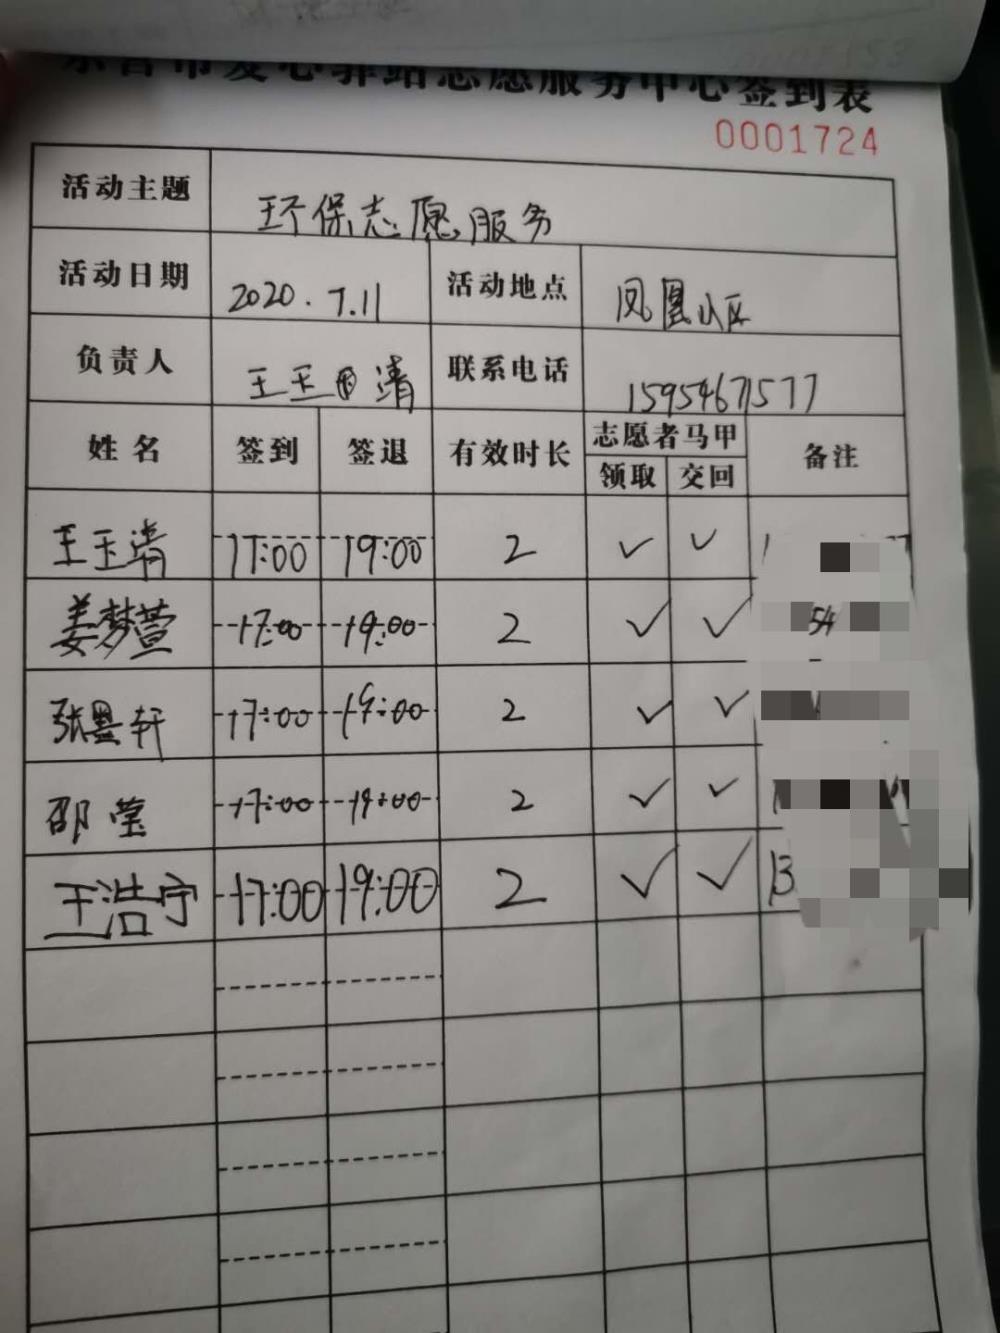 东营市爱心驿站志愿服务中心签到表
0001724
活动主题 环保志愿服务
活动日期 2020.7.11 活动地点 凤凰小区
负责人 王玉清 联系电话 15954671577
姓名 签到 签退 有效时长 志愿者马甲 备注
领取 交回
王玉清 17:00 19:00 2 ✓ ✓
姜梦萱 17:00 19:00 2 ✓ ✓ 54
张墨轩 17:00 19:00 2 ✓ ✓
邵莹 17:00 19:00 2 ✓ ✓
王浩宇 17:00 19:00 2 ✓ ✓ 13